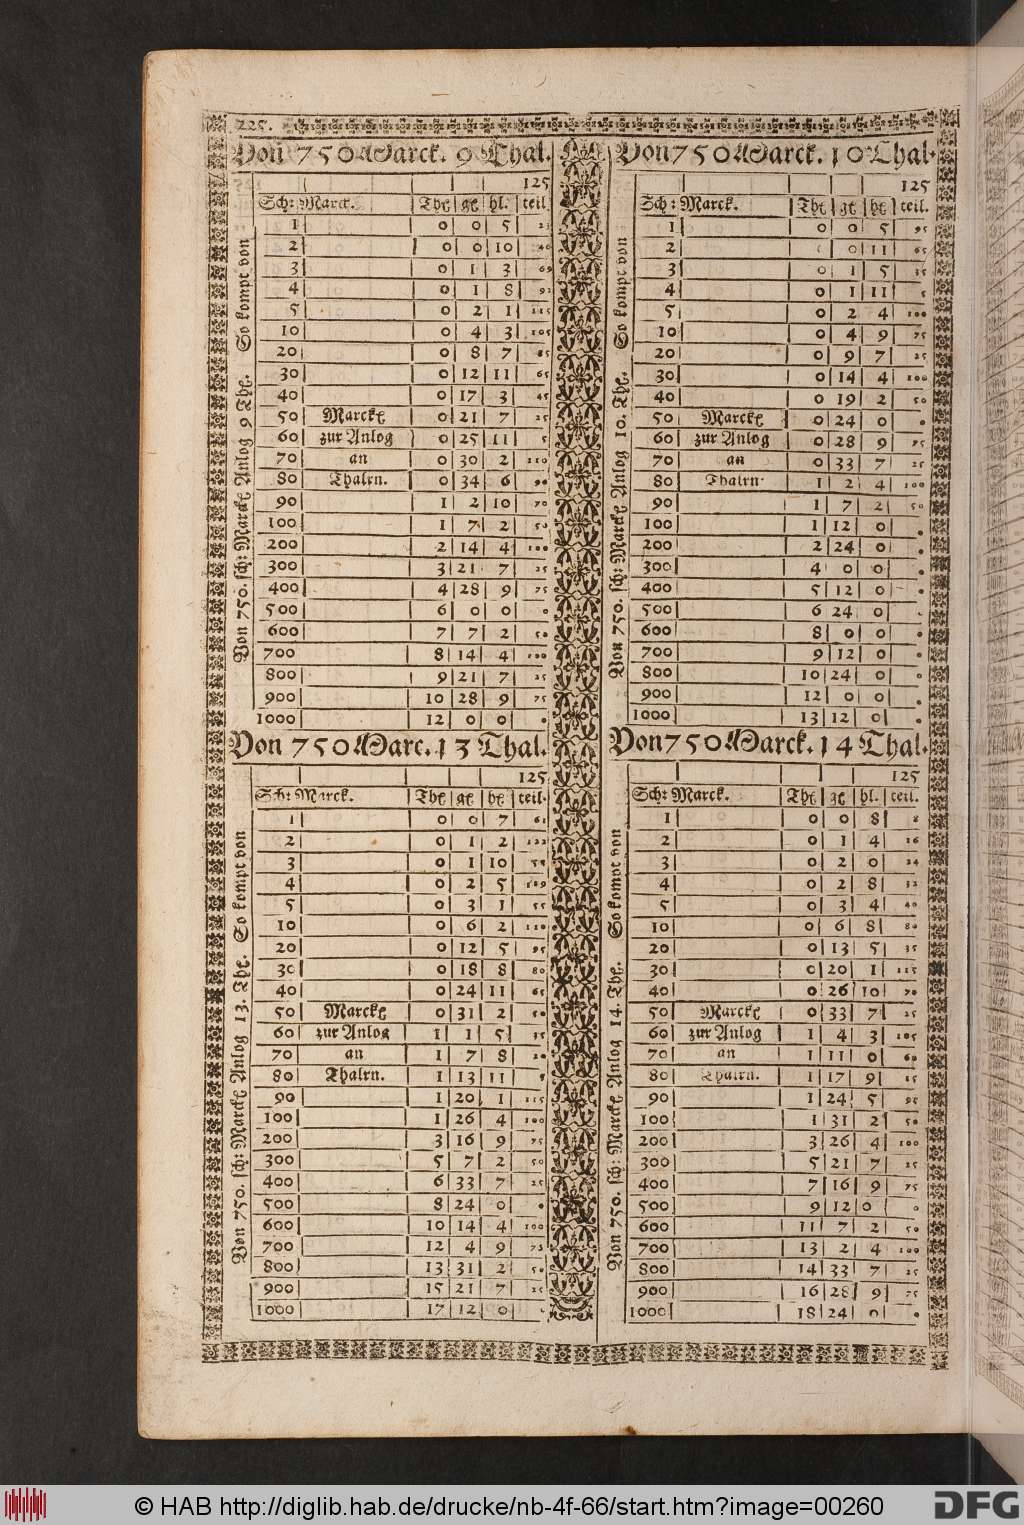 225.
Von 750 Marck. 9 Thal.
125
Sch: Marck. Thl gl hl. teil
1 0 0 5
2 0 0 10 40
3 0 1 3 69
4 0 1 8 92
5 0 2 1 115
10 0 4 3 105
20 0 8 7 85
30 0 12 11 65
40 0 17 3 45
50 Marckl 0 21 7 25
60 zur Anlog 0 25 11 5
70 an 0 30 2 110
80 Thalrn. 0 34 6 90
90 1 2 10 70
100 1 7 2 50
200 2 14 4 100
300 3 21 7 25
400 4 28 9 75
500 6 0 0 0
600 7 7 2 50
700 8 14 4 100
800 9 21 7 25
900 10 28 9 75
1000 12 0 0
Von 750. sch: Marckl Anlog 9 Thl. So kompt von
Von 750 Marck. 10 Thal.
125
Sch: Marck. Thl gl hl teil.
1 0 0 5 95
2 0 11 65
3 0 1 5 35
4 0 1 11 5
5 0 2 4 100
10 0 4 9 75
20 0 9 7 25
30 0 14 4 100
40 0 19 2 50
50 Marckl 0 24 0
60 zur Anlog 0 28 9 75
70 an 0 33 7 25
80 Thalrn 1 2 4 100
90 1 7 2 50
100 1 12 0
200 2 24 0
300 4 0 0
400 5 12 0
500 6 24 0
600 8 0 0
700 9 12 0
800 10 24 0
900 12 0 0
1000 13 12 0
Von 750. sch: Marckl Anlog 10. Thl. So kompt von
Von 750 Marc. 13 Thal.
125
Sch: Marck. Thl gl hl teil.
1 0 0 7 61
2 0 1 2 122
3 0 1 10 58
4 0 2 5 109
5 0 3 1 55
10 0 6 2 110
20 0 12 5 95
30 0 18 8 80
40 0 24 11 65
50 Marckl 0 31 2 50
60 zur Anlog 1 1 5 35
70 an 1 7 8 20
80 Thalrn. 1 13 11 5
90 1 20 1 115
100 1 26 4 100
200 3 16 9 75
300 5 7 2 50
400 6 33 7 25
500 8 24 0
600 10 14 4 100
700 12 4 9 75
800 13 31 2 50
900 15 21 7 25
1000 17 12 0
Von 750. sch: Marckl Anlog 13. Thl. So kompt von
Von 750 Marck. 14 Thal.
125
Sch: Marck. Thl gl hl. teil.
1 0 0 8 8
2 0 1 4 16
3 0 2 0 24
4 0 2 8 32
5 0 3 4 40
10 0 6 8 80
20 0 13 5 35
30 0 20 1 115
40 0 26 10 70
50 Marckl 0 33 7 25
60 zur Anlog 1 4 3 105
70 an 1 11 0 60
80 Thalrn. 1 17 9 15
90 1 24 5 95
100 1 31 2 50
200 3 26 4 100
300 5 21 7 25
400 7 16 9 75
500 9 12 0 0
600 11 7 2 50
700 13 2 4 100
800 14 33 7 25
900 16 28 9 75
1000 18 24 0
Von 750. sch: Marckl Anlog 14. Thl. So kompt von
© HAB http://diglib.hab.de/drucke/nb-4f-66/start.htm?image=00260
DFG